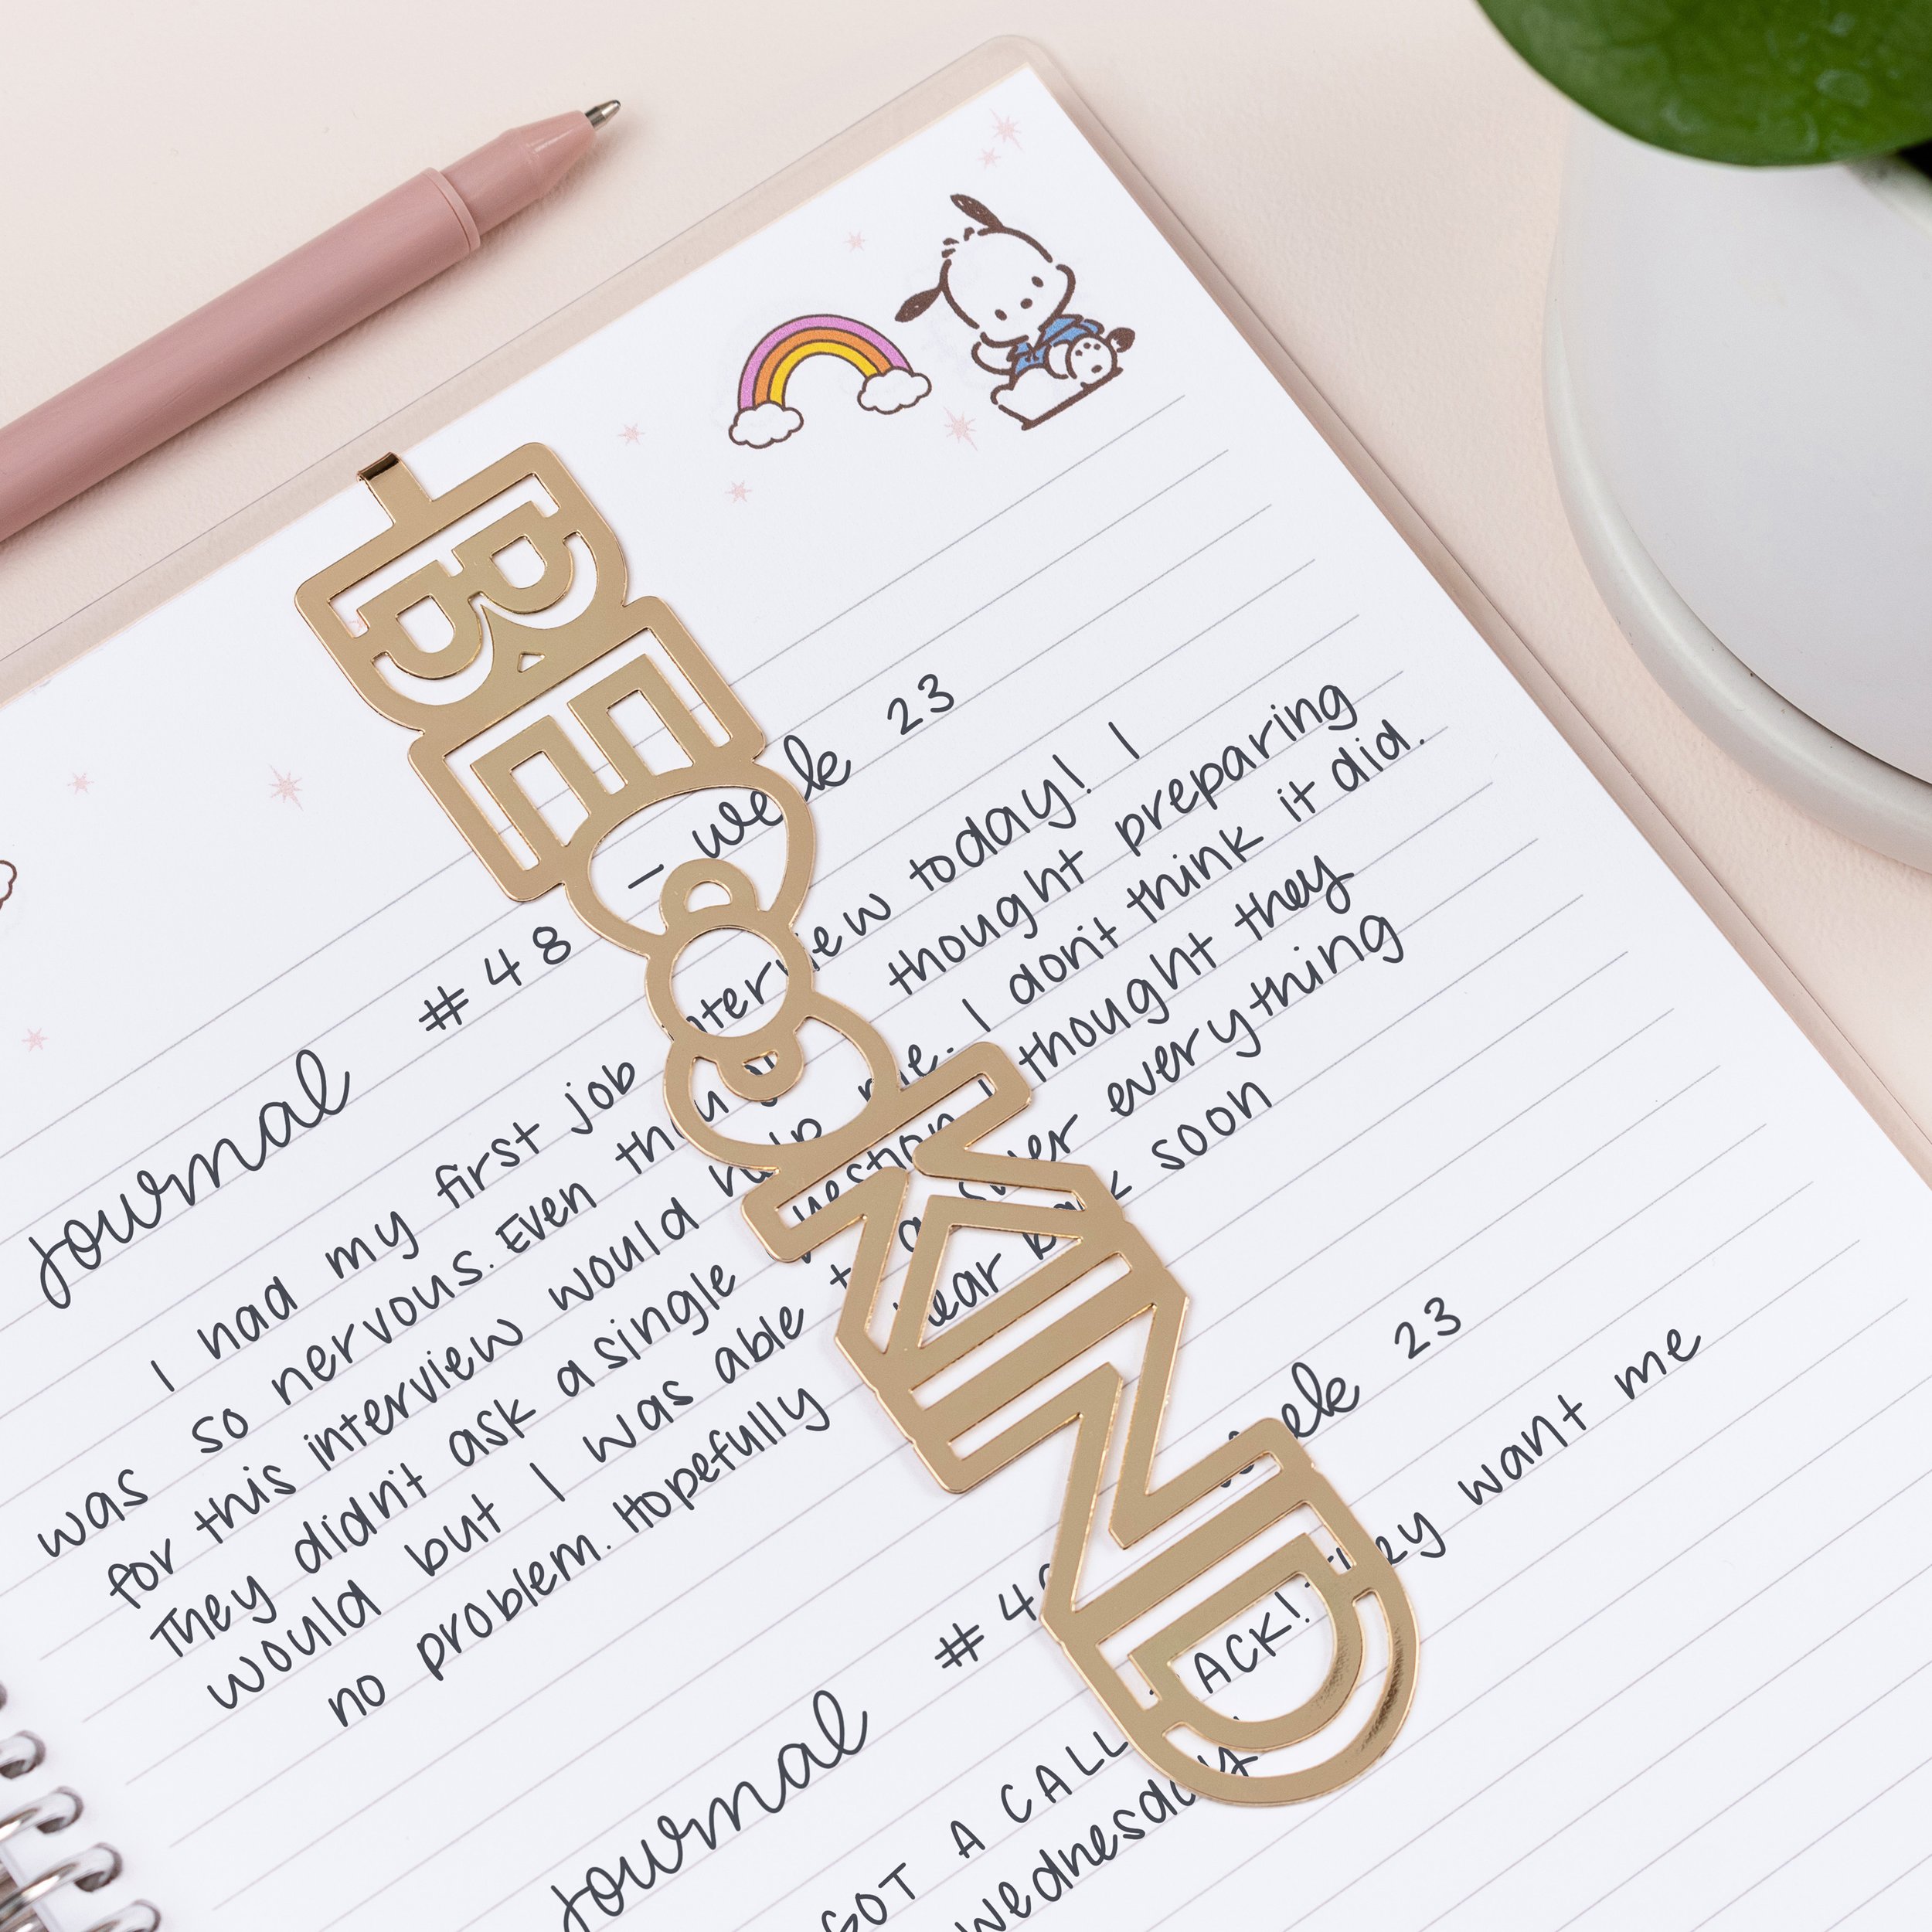 BE KIND
Journal #48 – week 23
I had my first job interview today! I
was so nervous. Even though I thought preparing
for this interview would help me. I don't think it did.
They didn't ask a single question I thought they
would but I was able to answer everything
no problem. Hopefully hear back soon
Journal #49 week 23
GOT A CALL BACK! They want me
Wednesday